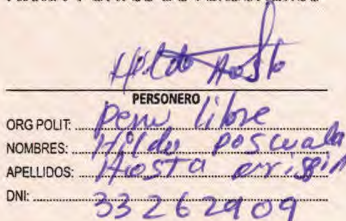 Hildo Aosto
PERSONERO
ORG POLIT: Peru libre
NOMBRES: Hildo Poscuala
APELLIDOS: Hosta
DNI: 33262909